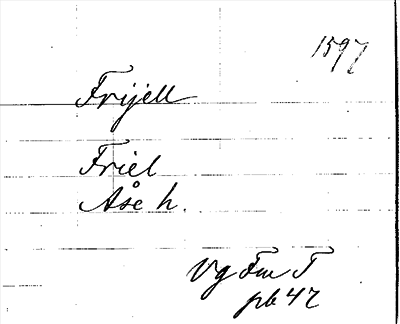 1597
Frijell
Friel
Åse h.
Vg Fm T
pb 47